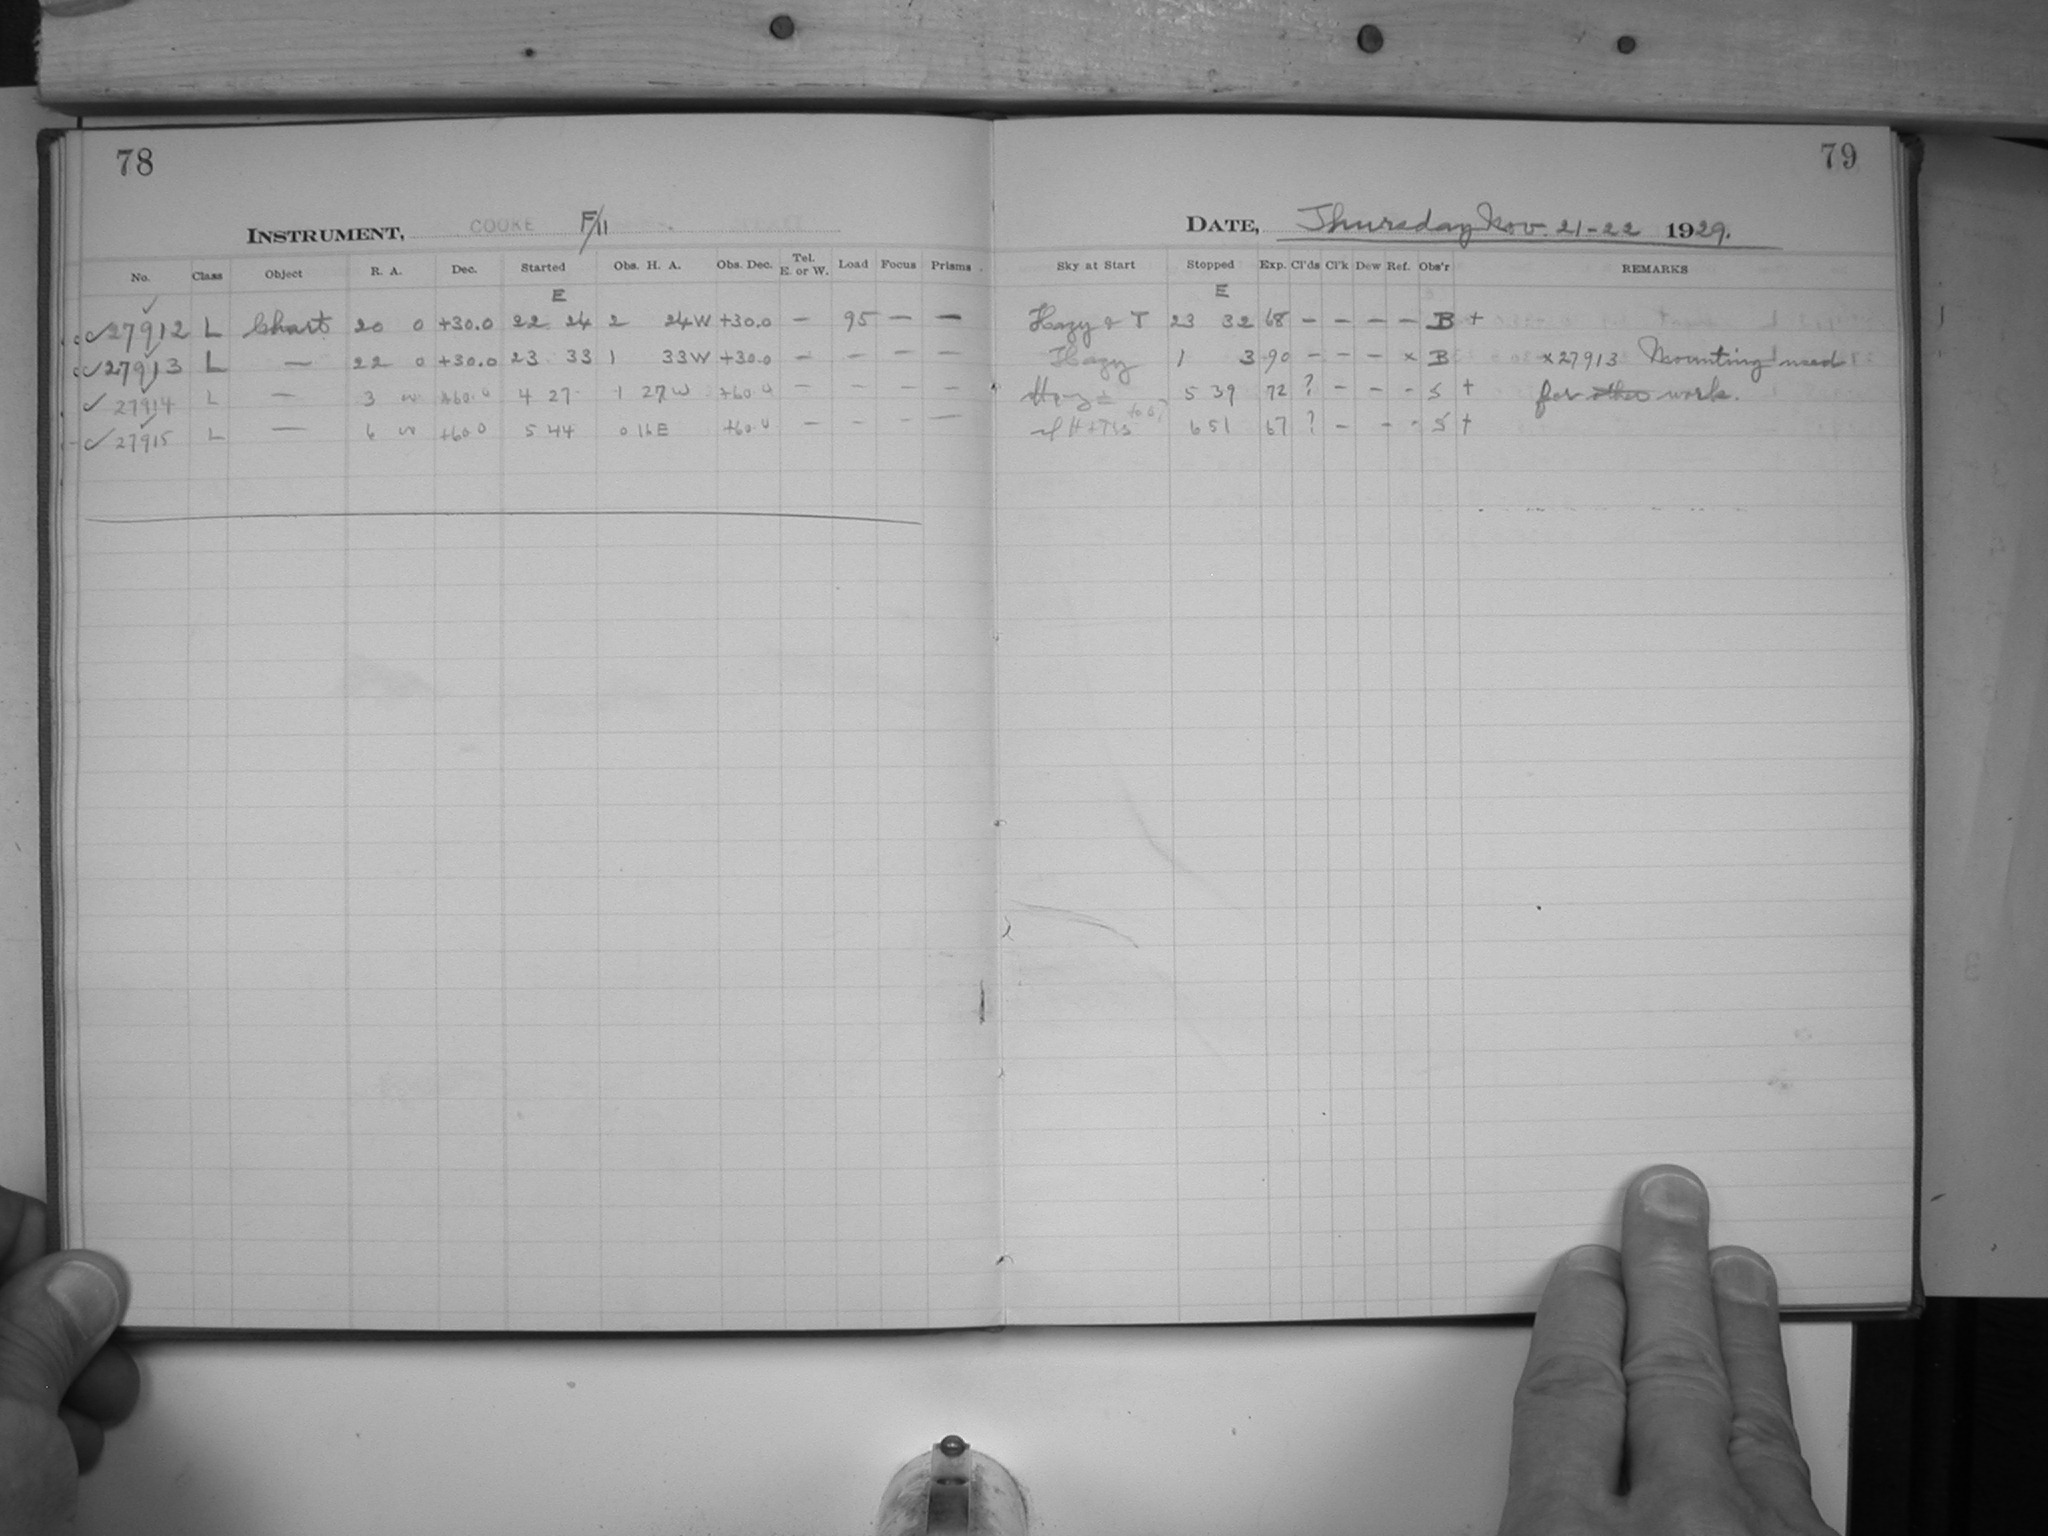 78
79
INSTRUMENT, COOKE F/11
DATE, Thursday Nov. 21-22 1929.
No. Class Object R. A. Dec. Started Obs. H. A. Obs. Dec. Tel. E. or W. Load Focus Prisms Sky at Start Stopped Exp. Cl'ds Cl'k Dew Ref. Obs'r REMARKS
E E
27912 L Chart 20 0 +30.0 22 24 2 24W +30.0 — 95 — — Hazy & T 23 32 68 — — — — B +
27913 L — 22 0 +30.0 23 33 1 33W +30.0 — — — — Hazy 1 3 90 — — — x B x27913 Mounting used
27914 L — 3 +60.0 4 27 1 27W +60.0 — — — — 5 39 72 ? - - - S + for other work.
27915 L — 6 +60.0 5 44 0 16E +60.0 — — — — 6 51 67 ? - - - S +